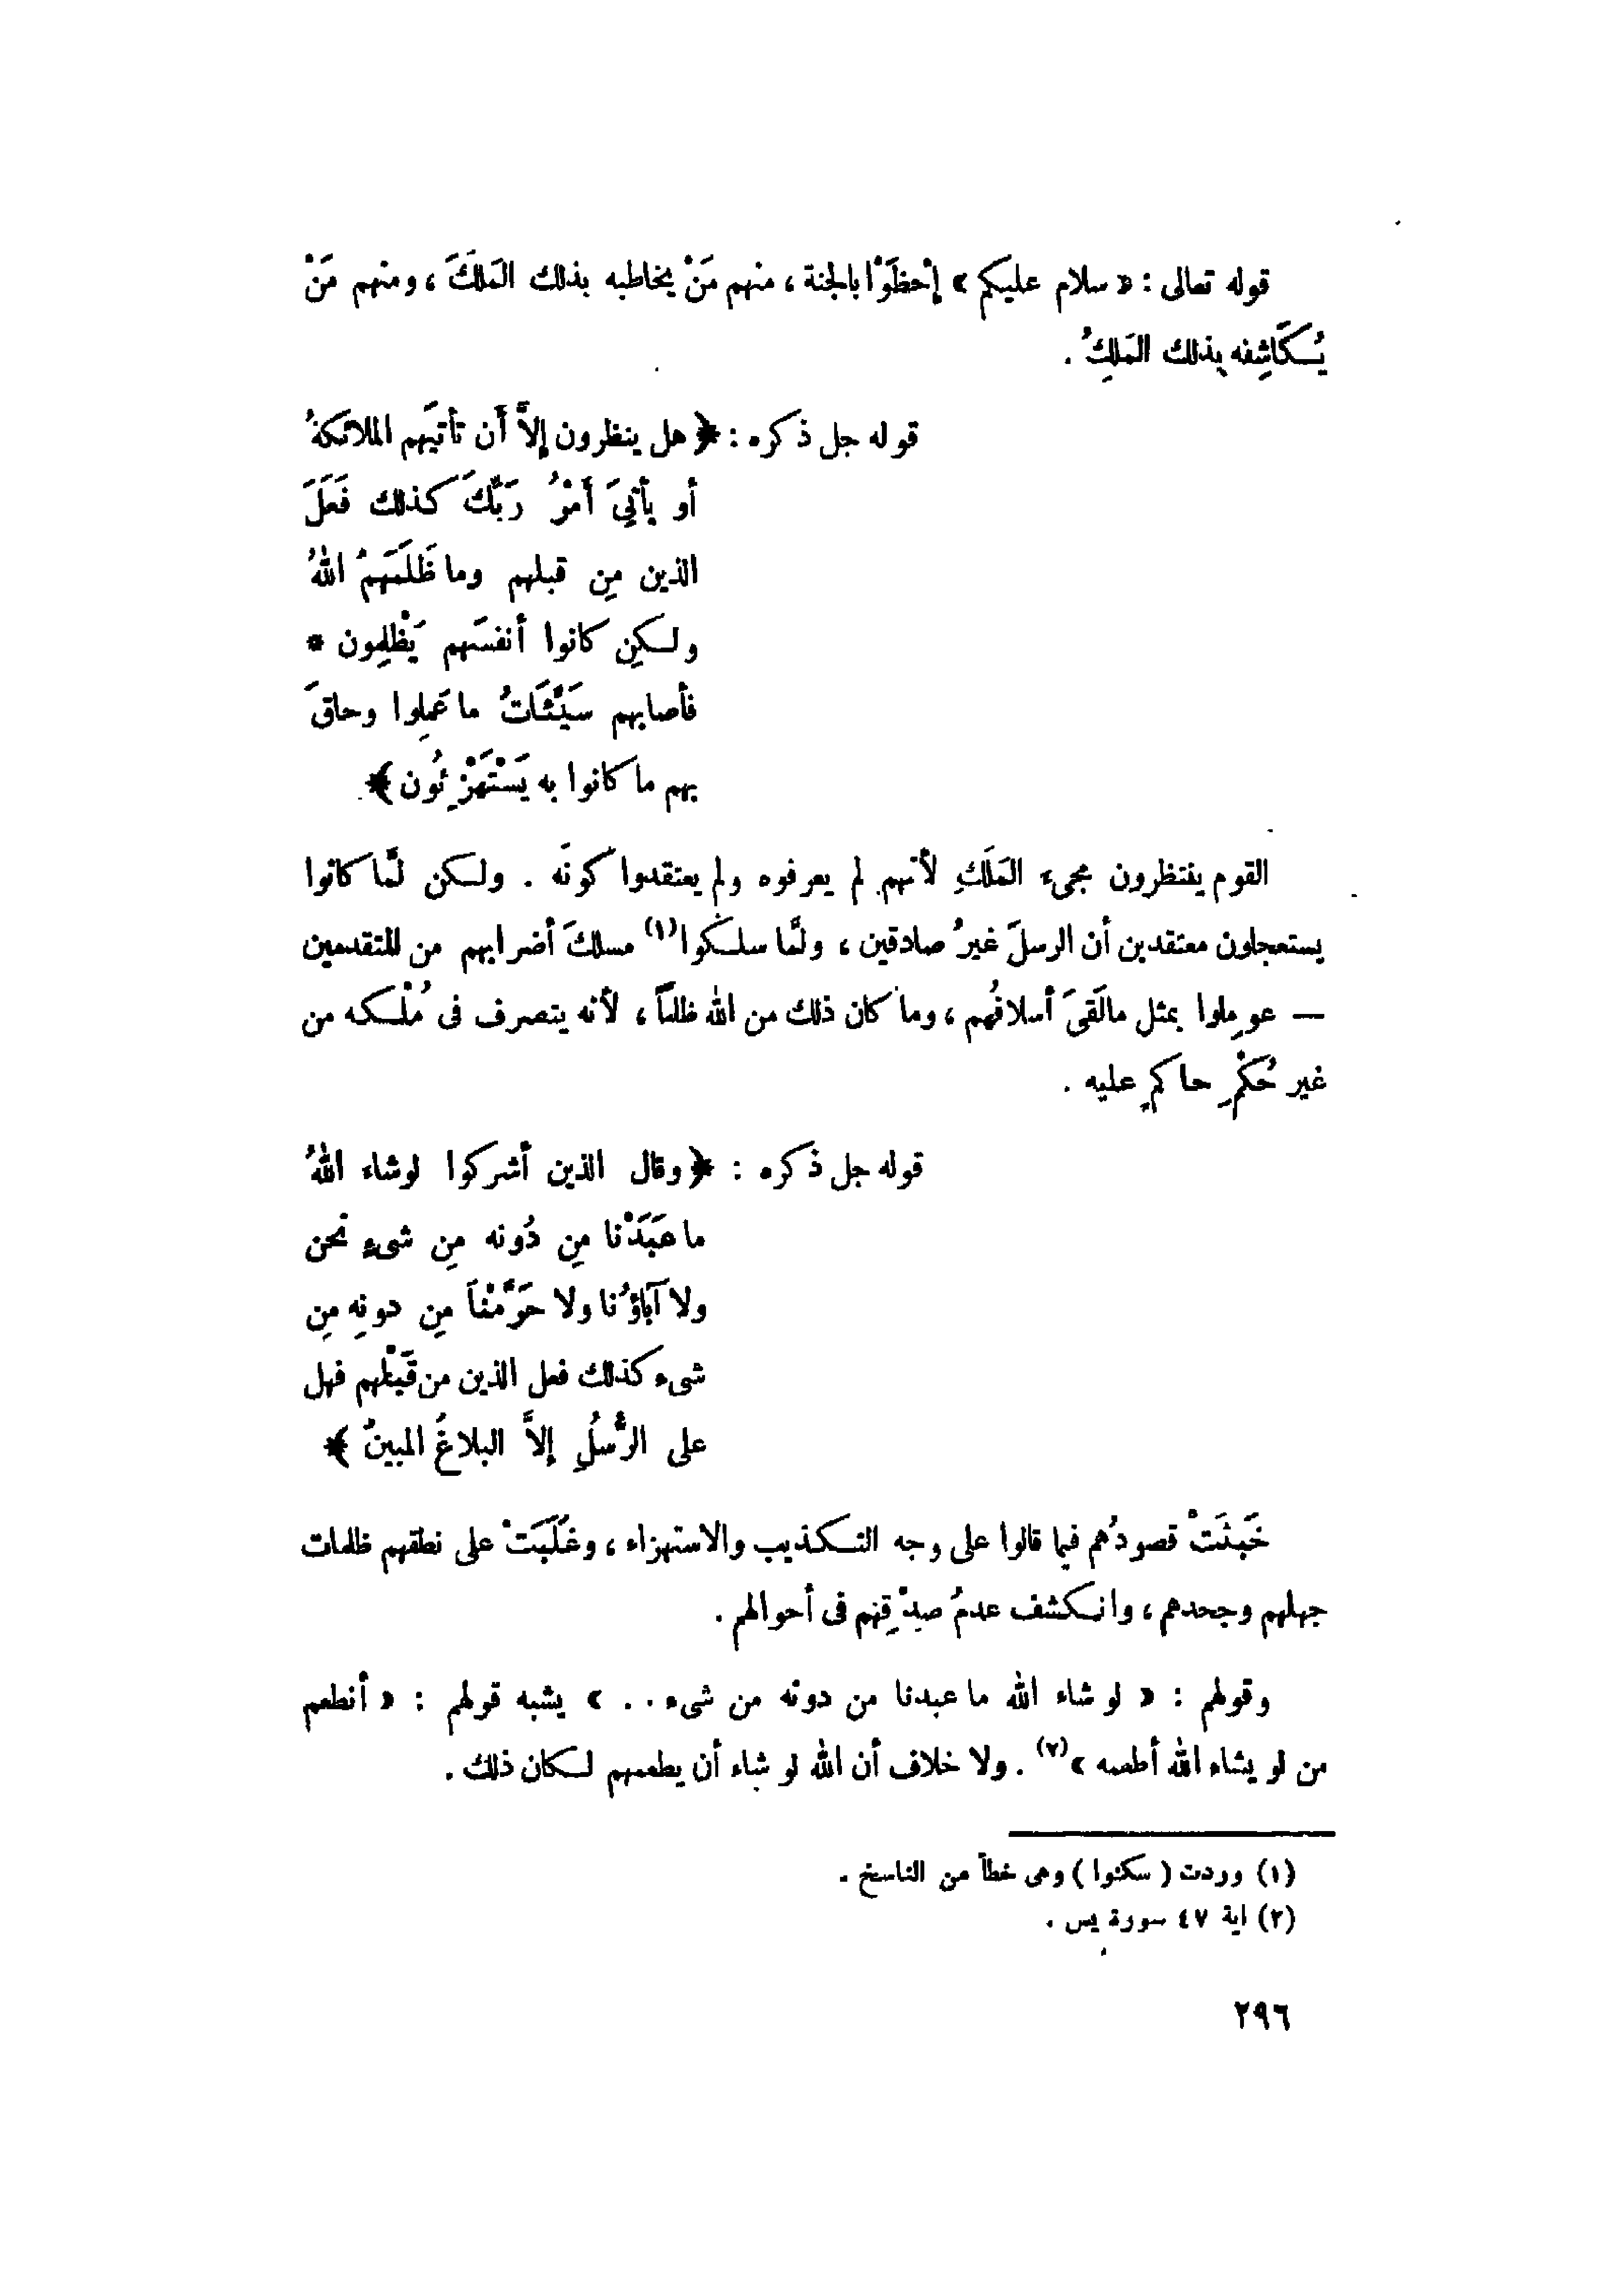 قوله تعالى : « سلام عليكم » إحْظَوْا بالجنة ، منهم مَنْ يخاطبه بذلك المَلَكَ ، ومنهم مَنْ
يُكَاشِفه بذلك المَلِكُ .
قوله جل ذكره : ﴿ هل ينظرون إلاَّ أَن تأتيَهم الملائكةُ
أو يأتيَ أَمْرُ رَبِّكَ كذلك فَعَلَ
الذين مِن قبلهم وما ظَلَمَهمُ اللهُ
ولكن كانوا أنفسَهم يَظْلِمون *
فأصابهم سَيِّئَاتُ ما عَمِلوا وحاقَ
بهم ما كانوا به يَسْتَهْزِئُون ﴾.
القوم ينتظرون مجىء المَلَكِ لأنهم لم يعرفوه ولم يعتقدوا كونَه . ولكن لمَّا كانوا
يستعجلون معتقدين أن الرسلَ غيرُ صادقين ، ولمَّا سلكوا(١) مسلكَ أضرابهم من المتقدمين
— عومِلوا بمثل مالَقىَ أسلافُهم ، وما كان ذلك من الله ظلماً ، لأنه يتصرف فى مُلْكه من
غير حُكْمِ حاكمٍ عليه .
قوله جل ذكره : ﴿ وقال الذين أشركوا لوشاء اللهُ
ما عَبَدْنا مِن دُونه مِن شىءٍ نحن
ولا آباؤُنا ولا حَرَّمْنَا مِن دونِه مِن
شىء كذلك فعل الذين من قَبْلهم فهل
على الرُّسُلِ إلاَّ البلاغُ المبينُ ﴾
خَبثَتْ قصودُهم فيما قالوا على وجه التكذيب والاستهزاء ، وغَلَبَتْ على نطقهم ظلمات
جهلهم وجحدهم ، وانكشف عدمُ صِدْقِهم فى أحوالهم .
وقولهم : « لو شاء الله ما عبدنا من دونه من شىء . . » يشبه قولهم : « أنطعم
من لو يشاء الله أطعمه »(٢) . ولا خلاف أن الله لو شاء أن يطعمهم لكان ذلك .
(١) وردت ( سكنوا ) وهى خطأ من الناسخ .
(٢) اية ٤٧ سورة يس .
٢٩٦